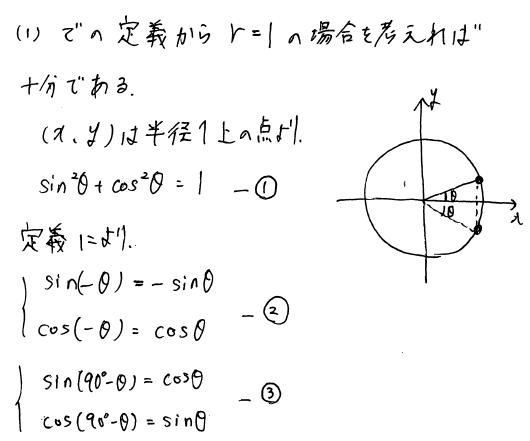 (1) での定義から r=1 の場合を考えれば
十分である.
(x, y)は半径1上の点より.
sin²θ + cos²θ = 1 — ①
定義により.
sin(-θ) = - sinθ
cos(-θ) = cosθ — ②
sin(90°-θ) = cosθ
cos(90°-θ) = sinθ — ③
y
1
θ
θ
x